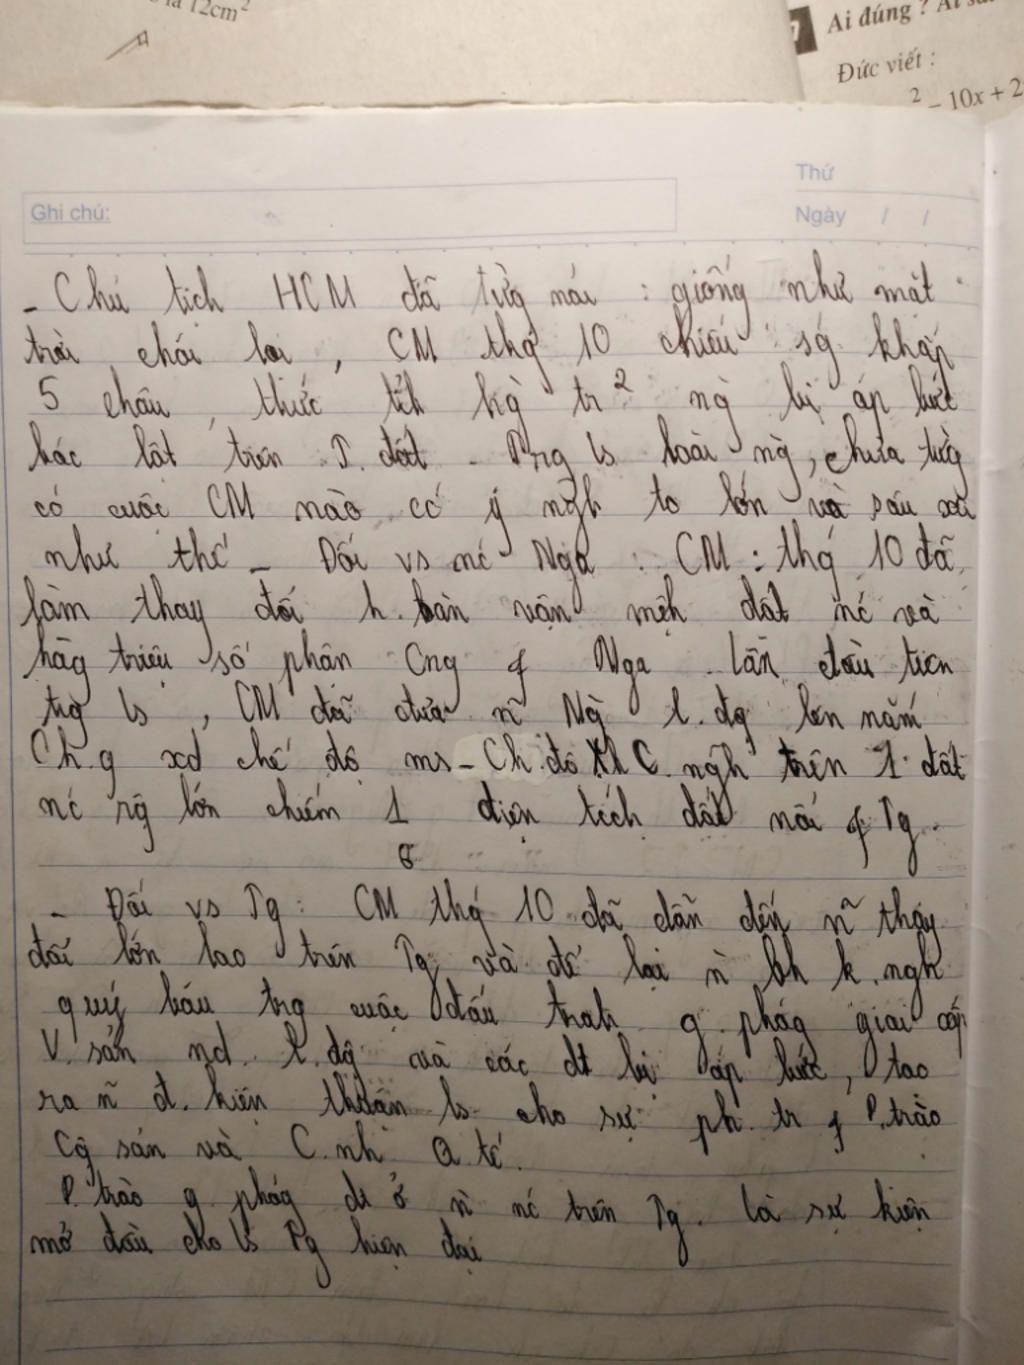 là 12cm²
7 Ai đúng ? Ai sai
Đức viết :
² – 10x + 2
Thứ
Ghi chú:
Ngày / /
- Chủ tịch HCM đã từg nói : giống như mặt
trời chói lọi, CM thg 10 chiếu sg khắp
5 châu, thức tỉh hg tr² ng bị áp bức
bóc lột trên T. đất. Trg ls loài ng, chưa từg
có cuộc CM nào có ý ngh to lớn và sâu xa
như thế - Đối vs nc Nga : CM : thg 10 đã
làm thay đổi h. toàn vận mệh đất nc và
hàg triệu số phận Cng ở Nga. lần đầu tiên
trg ls, CM đã đưa n~ Ng l. đg lên nắm
Ch. q xd chế độ ms - Ch. độ XHC. ngh trên 1 đất
nc rg lớn chiếm 1 diện tích đất nổi ở Tg.
6
- Đối vs Tg : CM thg 10 đã dẫn đến n~ thay
đổi lớn lao trên Tg và để lại n bh k. ngh
quý báu trg cuộc đấu trah g. phóg giai cấp
V. sản nd. l. độg và các dt bị áp bức, tạo
ra n~ đ. kiện thuận ls cho sự ph. tr ở P. trào
Cg sản và C. nh Q. tế.
P. trào g. phóg dt ở n nc trên Tg. Là sự kiện
mở đầu cho ls Tg hiện đại